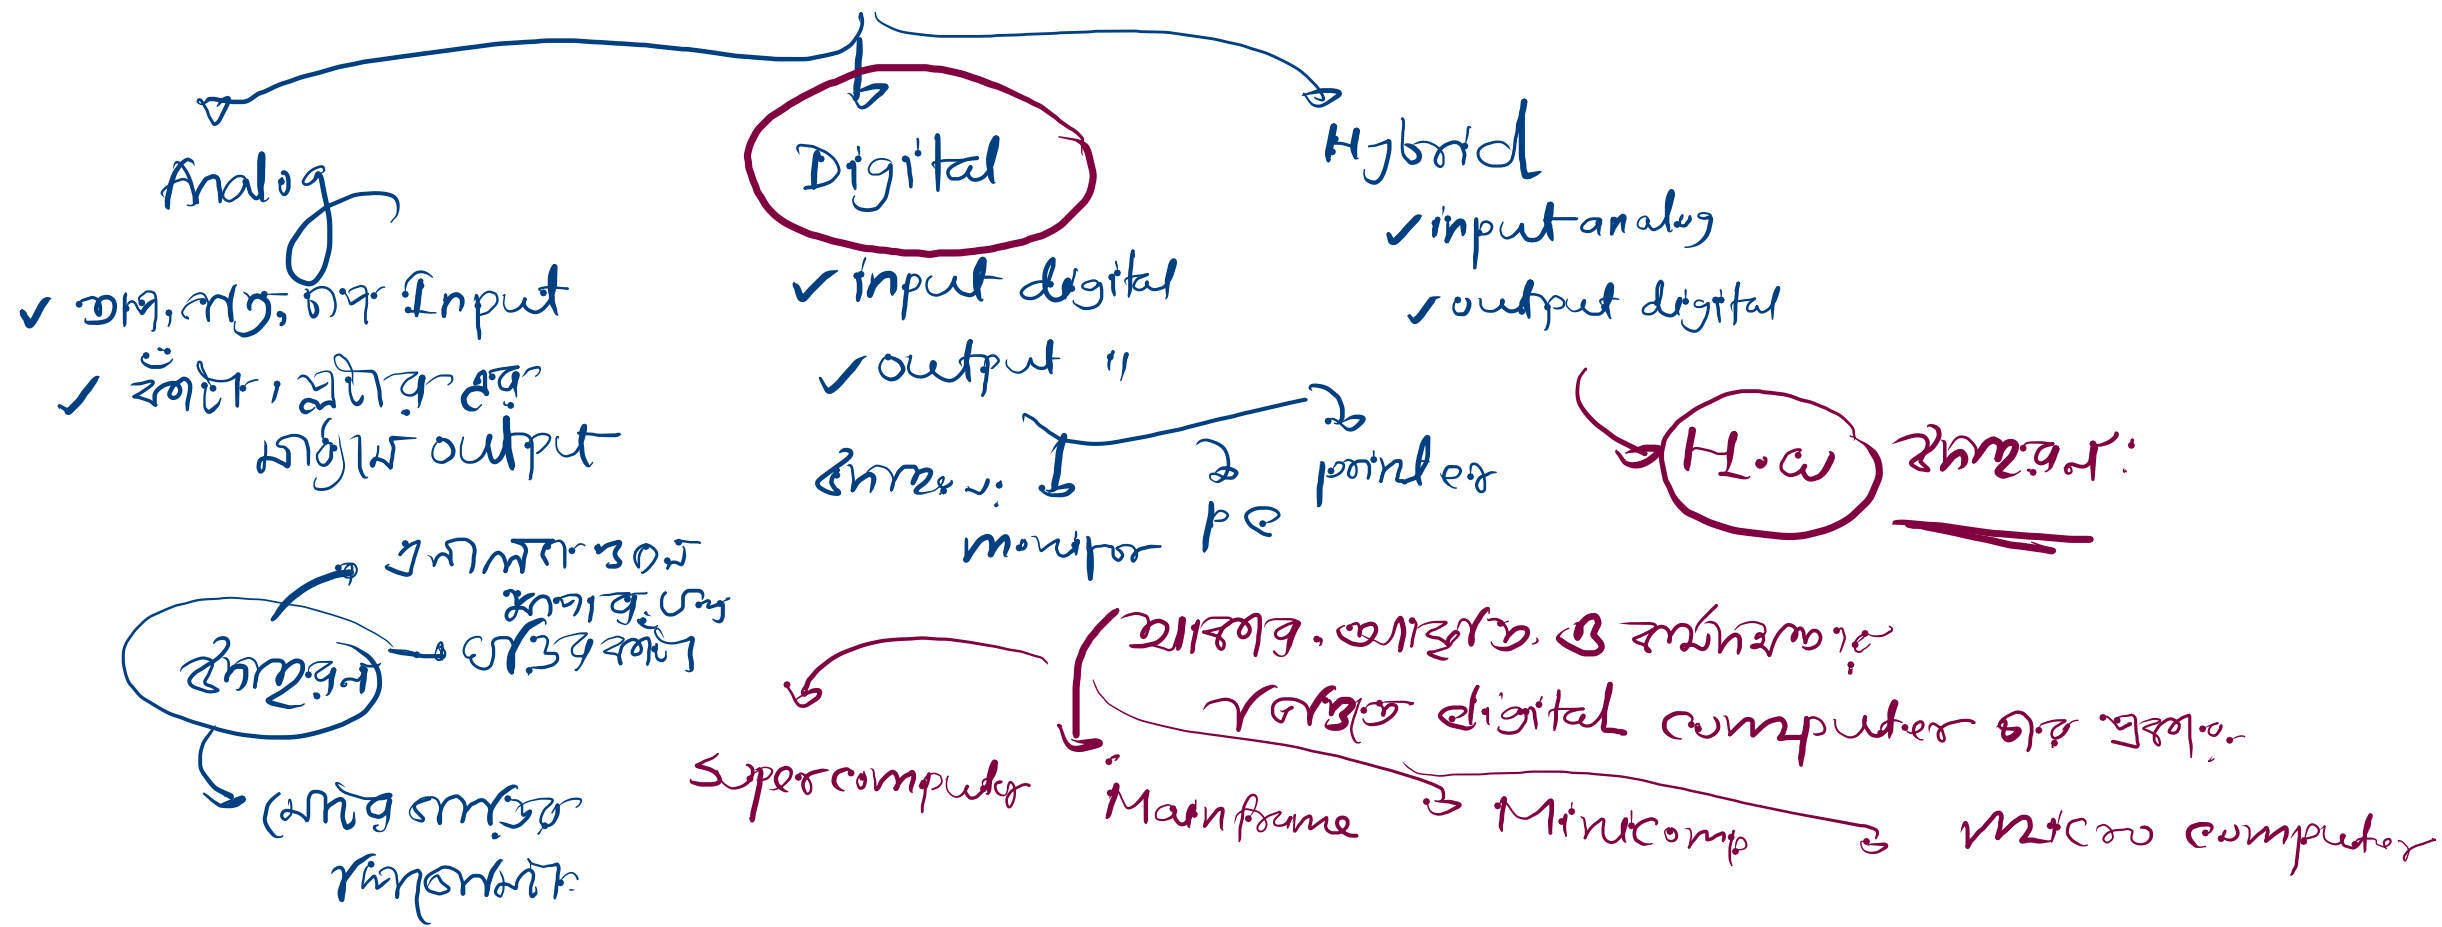 Analog
✓ তাপ, গতি, চাপ Input
✓ কাঁটা, প্লটার এর
মাধ্যমে output
উদাহরণ
এনালগ ওজন
মাপার যন্ত্র
ঘড়ির কাঁটা
মোটর গাড়ির
স্পিডোমিটার
Digital
✓ input digital
✓ output "
উদাহরণ:
monitor
PC
printer
Hybrid
✓ input analog
✓ output digital
H.W উদাহরণ:
আকার, আকৃতি, ও কার্যক্ষমতার
ভিত্তিতে digital computer চার প্রকার
Supercomputer
Mainframe
Minicomp
Micro computer